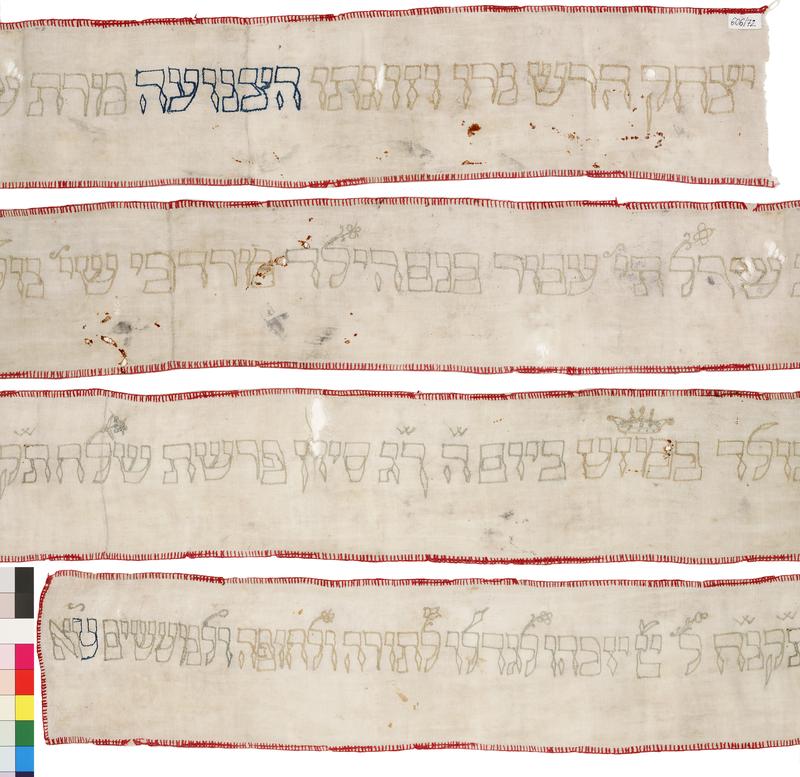 606/72
יצחק הרש נרו וזוגתו הצנועה מרת
שרל תי' עבור בנם הילד מרדכי שי'
נולד במזט ביום ה כג סיון פרשת שלח
תקנח ל יזכהו לגדלו לתורה ולחופה ולמעשים ט א